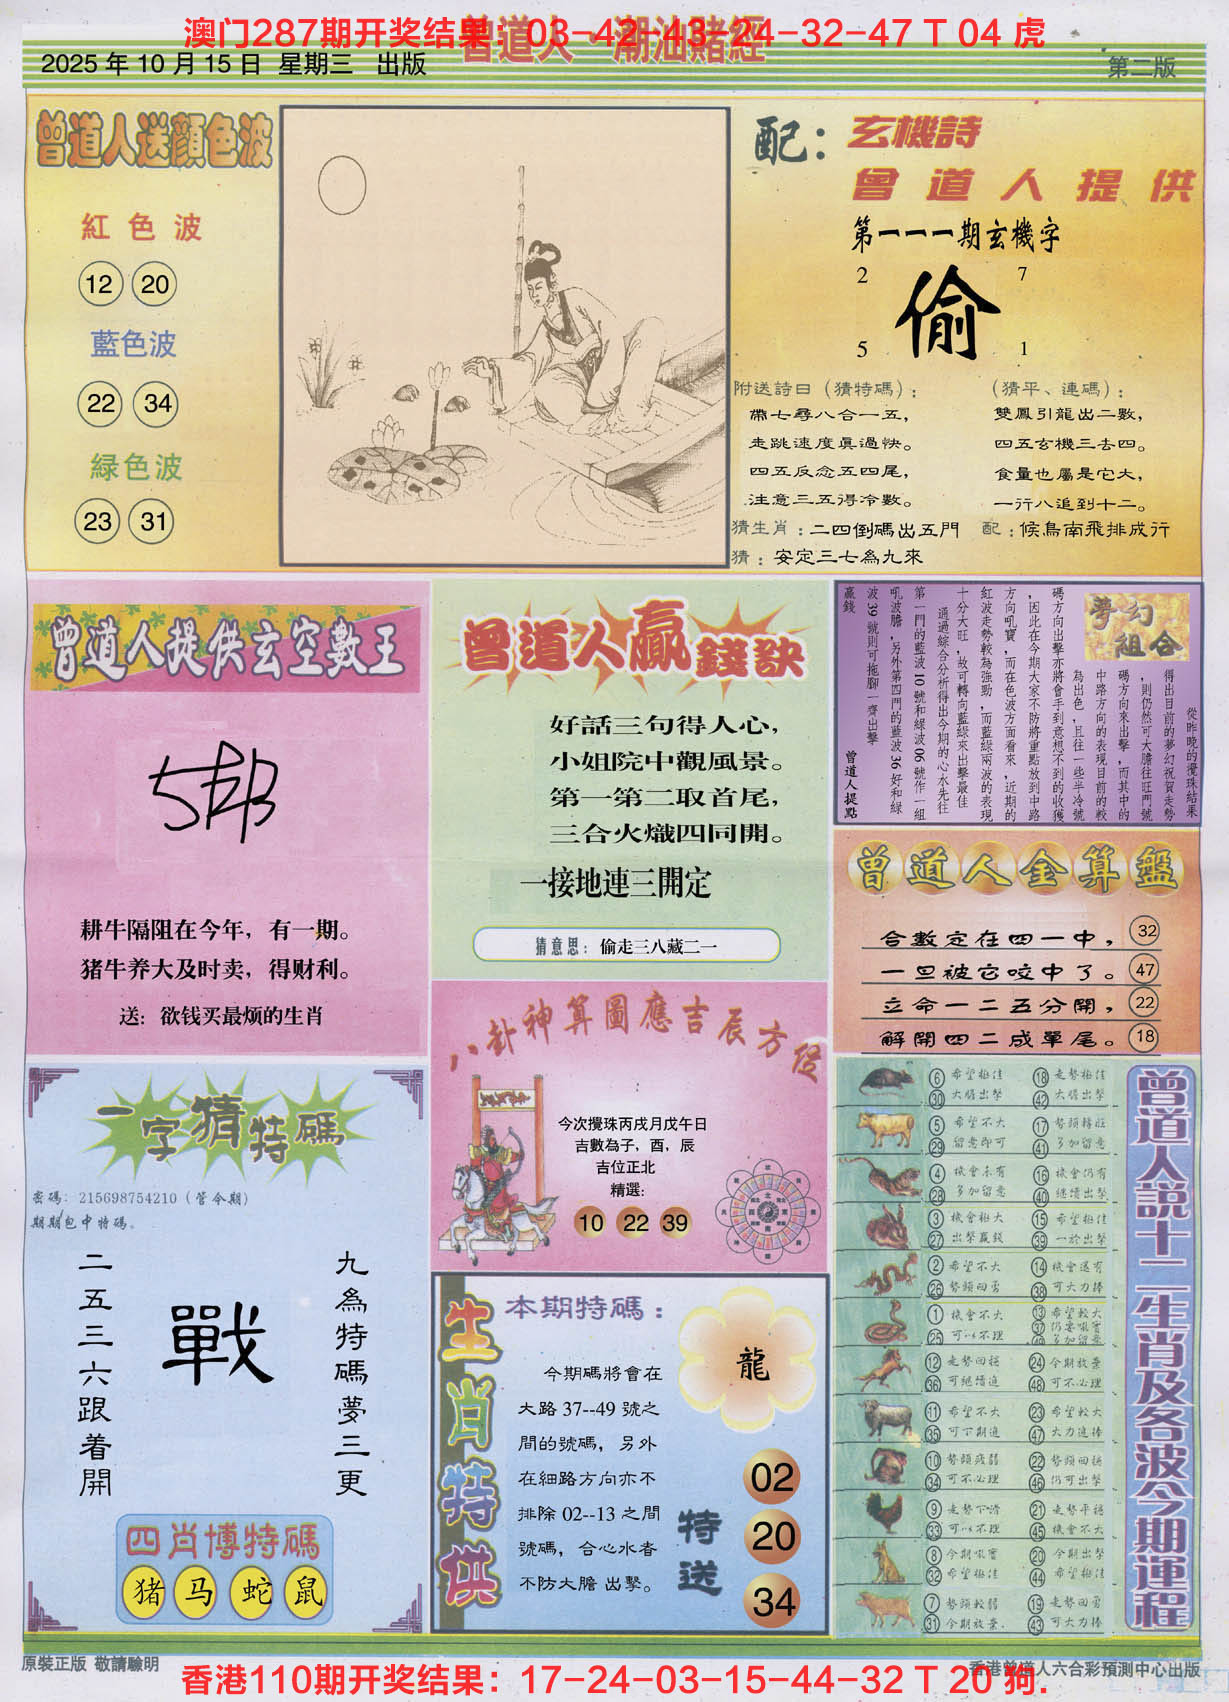 澳门287期开奖结果：03-42-43-24-32-47 T 04 虎
曾道人·潮汕賭經
2025 年 10 月 15 日 星期三 出版
第二版
曾道人送顏色波
紅色波
12 20
藍色波
22 34
緑色波
23 31
配：玄機詩
曾道人提供
第一一一期玄機字
2 7
偷
5 1
附送詩曰（猜特碼）：
帶七尋八合一五，
走跳速度真過快。
四五反念五四尾，
注意三五得冷數。
（猜平、連碼）：
雙鳳引龍出二數，
四五玄機三去四。
食量也屬是它大，
一行八追到十二。
猜生肖：二四倒碼出五門
配：候鳥南飛排成行
猜：安定三七為九來
曾道人提供玄空數王
耕牛隔阻在今年，有一期。
猪牛养大及时卖，得财利。
送：欲钱买最烦的生肖
曾道人贏錢訣
好話三句得人心，
小姐院中觀風景。
第一第二取首尾，
三合火熾四同開。
一接地連三開定
猜意思：偷走三八藏二一
夢幻組合
從昨晚的攪珠結果
得出目前的夢幻祝賀走勢
，則仍然可大膽往旺門號
碼方向來出擊，而其中的
中路方向的表現目前的較
為出色，且往一些半冷號
碼方向出擊亦將會手到意想不到的收獲
，因此在今期大家不防將重點放到中路
方向吼寶，而在色波方面看來，近期的
紅波走勢較為強勁，而藍綠兩波的表現
十分大旺，故可轉向藍綠來出擊最佳
通過綜合分析得出今期的心水先往
第一門的藍波 10 號和綠波 06 號作一組
吼波膽，另外第四門的藍波 36 好和綠
波 39 號則可拖腳一齊出擊
贏錢
曾道人提點
曾道人金算盤
合數定在四一中， 32
一旦被它咬中了。 47
立命一二五分開， 22
解開四二成單尾。 18
八卦神算圖應吉辰方位
今次攪珠丙戌月戊午日
吉數為子，酉，辰
吉位正北
精選：
10 22 39
一字猜特碼
密碼：215698754210（管令期）
期期包中特碼。
二五三六跟着開
戰
九為特碼夢三更
四肖博特碼
猪 马 蛇 鼠
生肖特供
本期特碼：
龍
今期碼將會在
大路 37--49 號之
間的號碼，另外
在細路方向亦不
排除 02--13 之間
號碼，合心水者
不防大膽 出擊。
特送
02
20
34
曾道人説十二生肖及各波今期運程
6 希望極佳 18 走勢極佳
30 大膽出擊 42 大膽出擊
5 希望不大 17 勢頭轉旺
29 留意即可 41 多加留意
4 機會未有 16 機會仍有
28 多加留意 40 繼續出擊
3 機會極大 15 希望極佳
27 出擊贏錢 39 一於出擊
2 希望不大 14 機會還有
26 勢頭回勇 38 可大力捧
1 機會不大 13 希望較大
25 可以不理 37 仍要吼實
49 多加留意
12 走勢回穩 24 今期放棄
36 可繼續追 48 可不必理
11 希望不大 23 希望較大
35 可下期追 47 大力追捧
10 勢頭疲弱 22 勢頭回穩
34 可不必理 46 仍可出擊
9 走勢下滑 21 走勢平穩
33 可以不理 45 機會不大
8 今期吼實 20 今期出擊
32 希望極佳 44 希望極佳
7 勢頭較弱 19 走勢回勇
31 今期放棄. 43 可大力捧
原裝正版 敬請驗明
香港曾道人六合彩預測中心出版
香港110期开奖结果：17-24-03-15-44-32 T 20 狗.